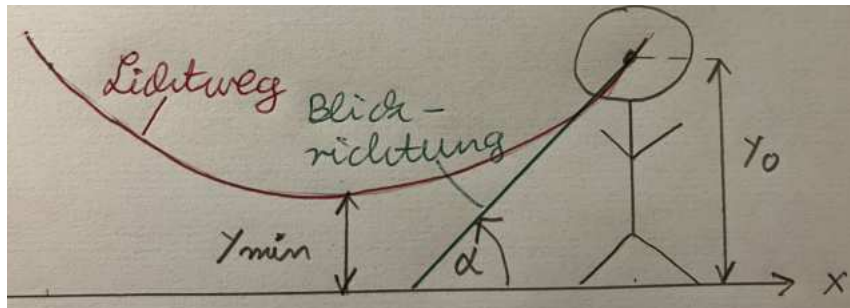 Lichtweg
Blick-
richtung
y₀
y min
α
x